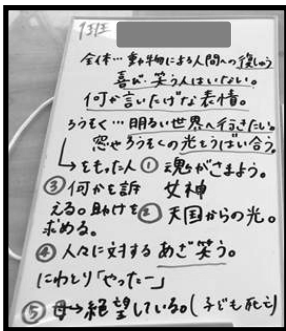 1班
全体…動物による人間への復しゅう
喜び、笑う人はいない。
何か言いたげな表情。
ろうそく…明るい世界へ行きたい。
窓やろうそくの光をうばい合う。
→をもった人① 魂がさまよう。
③何かを訴える。助けを求める。
女神
② 天国からの光。
④人々に対するあざ笑う。
にわとり「やったー」
⑤母→絶望している。(子ども死亡)